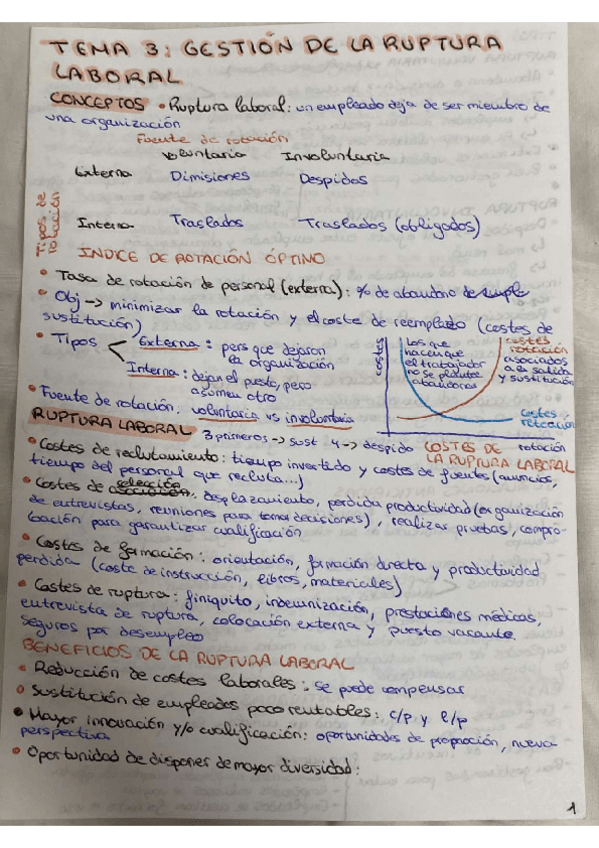 TEMA 3: GESTIÓN DE LA RUPTURA
LABORAL
CONCEPTOS • Ruptura laboral: un empleado deja de ser miembro de
una organización
Fuente de rotación
Voluntaria Involuntaria
Externa Dimisiones Despidos
Tipos de rotación
Interna Traslados Traslados (obligados)
INDICE DE ROTACIÓN ÓPTIMO
• Tasa de rotación de personal (externa): % de abandono de emple
• Obj -> minimizar la rotación y el coste de reemplazo (costes de
sustitución)
• Tipos
Externa: pers que dejaron
la organización
Interna: dejan el puesto, pero
asumen otro
• Fuente de rotación: voluntaria vs involuntaria
costes
Los que
hacen que
el trabajador
no se plantee
abandonar
costes
rotación
asociados
a la salida
y sustitución
costes
retención
rotación
RUPTURA LABORAL 3 primeros -> sust 4 -> despido COSTES DE
LA RUPTURA LABORAL
• Costes de reclutamiento: tiempo invertido y costes de fuentes (anuncios,
tiempo del personal que recluta...)
• Costes de selección, desplazamiento, perdida productividad (organización
de entrevistas, reuniones para tomar decisiones), realizar pruebas, compro-
bación para garantizar cualificación
• Costes de formación: orientación, formación directa y productividad
perdida (coste de instrucción, libros, materiales)
• Costes de ruptura: finiquito, indemnización, prestaciones médicas,
entrevista de ruptura, colocación externa y puesto vacante.
Seguros por desempleo
BENEFICIOS DE LA RUPTURA LABORAL
• Reducción de costes laborales: se puede compensar
• Sustitución de empleados poco rentables: c/p y l/p
• Mayor innovación y/o cualificación: oportunidades de promoción, nueva
perspectiva
• Oportunidad de disponer de mayor diversidad:
1